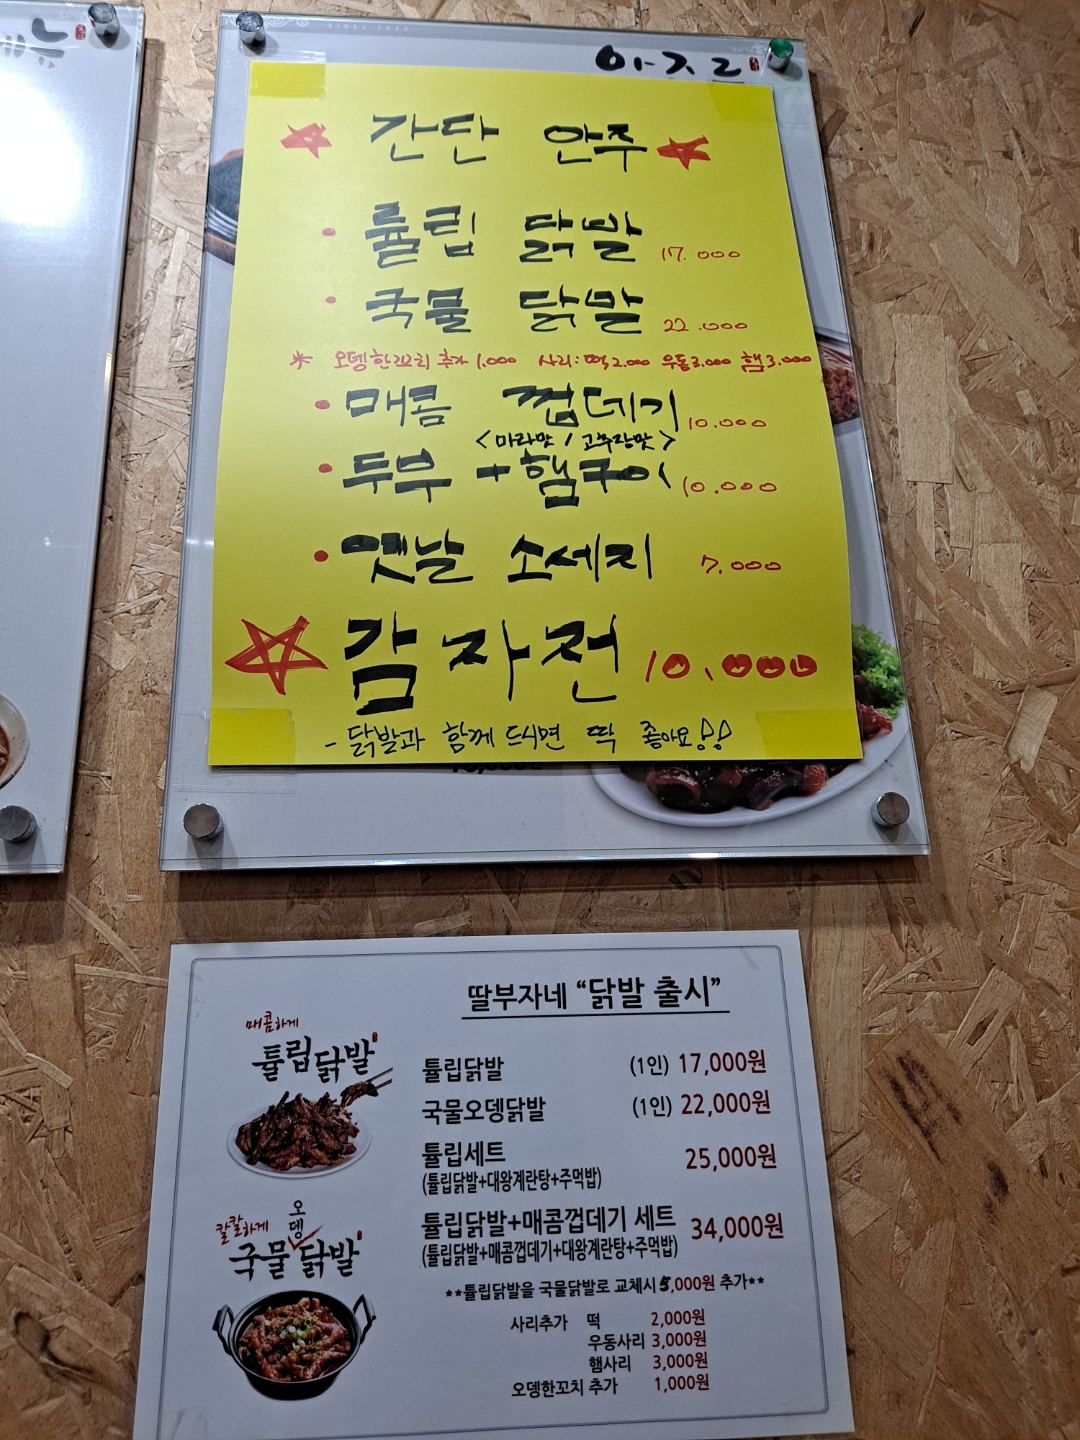 간단 안주
튤립 닭발 17.000
국물 닭발 22.000
※ 오뎅한꼬치 추가 1.000 사리: 떡 2.000 우동 3.000 햄 3.000
매콤 껍데기 10.000
<마라맛 / 고추장맛>
두부 + 햄구이 10.000
옛날 소세지 7.000
감자전 10.000
- 닭발과 함께 드시면 딱 좋아요!!
딸부자네 “닭발 출시”
매콤하게
튤립닭발
튤립닭발 (1인) 17,000원
국물오뎅닭발 (1인) 22,000원
튤립세트 25,000원
(튤립닭발+대왕계란탕+주먹밥)
칼칼하게
오뎅
국물닭발
튤립닭발+매콤껍데기 세트 34,000원
(튤립닭발+매콤껍데기+대왕계란탕+주먹밥)
**튤립닭발을 국물닭발로 교체시 5,000원 추가**
사리추가 떡 2,000원
우동사리 3,000원
햄사리 3,000원
오뎅한꼬치 추가 1,000원